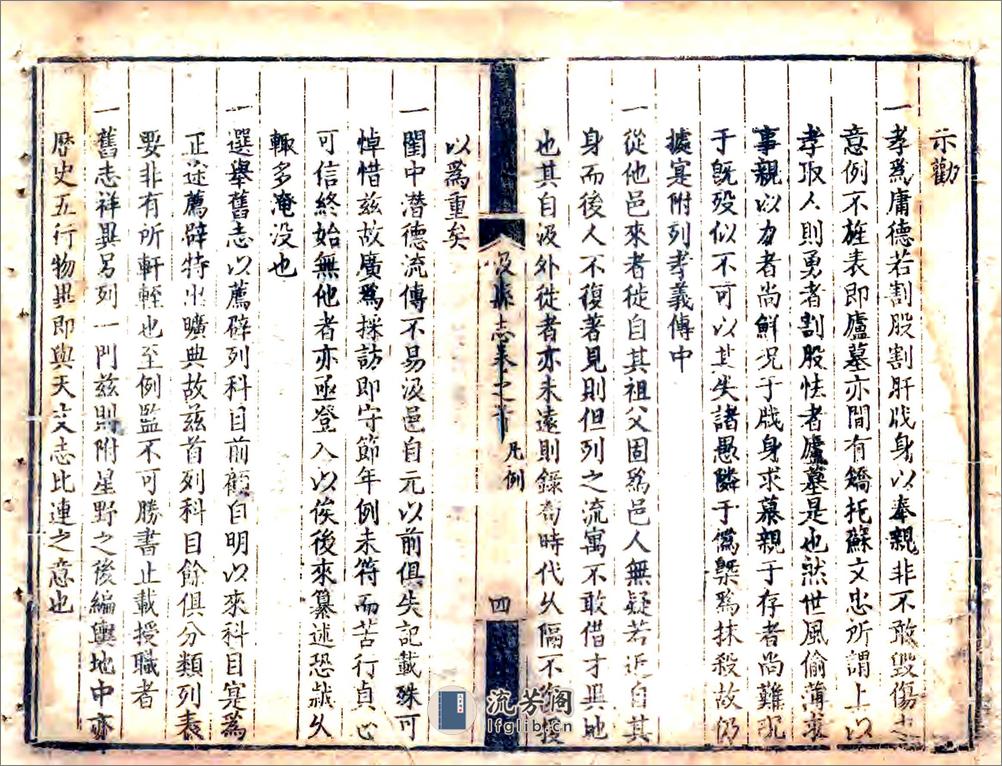 示勸
一孝爲庸德若割股割肝戕身以奉親非不敢毀傷之
意例不旌表即廬墓亦間有矯托蘇文忠所謂上以
孝取人則勇者割股怯者廬墓是也然世風偷薄求
事親以力者尚鮮况于戕身求慕親于存者尚難況
于旣殁似不可以其失諸愚隣于僞槩爲抹殺故仍
據寔附列孝義傳中
一從他邑來者徙自其祖父固爲邑人無疑若近自其
身而後人不復著見則但列之流寓不敢借才異地
也其自汲外徙者亦未遠則錄 時代乆隔不 援
以爲重矣
汲縣志卷之首
凡例
四
一閨中潛德流傳不易汲邑自元以前俱失記載殊可
悼惜兹故廣爲採訪即守節年例未符而苦行貞心
可信終始無他者亦亟登入以俟後來纂述恐越乆
輙多淹没也
一選舉舊志以薦辟列科目前顧自明以來科目寔爲
正途薦辟特出曠典故兹首列科目餘俱分類列表
要非有所軒輊也至例監不可勝書止載授職者
一舊志祥異另列一門兹則附星野之後編輿地中亦
歷史五行物異即與天文志比連之意也
流芳閣
lfglib.cn